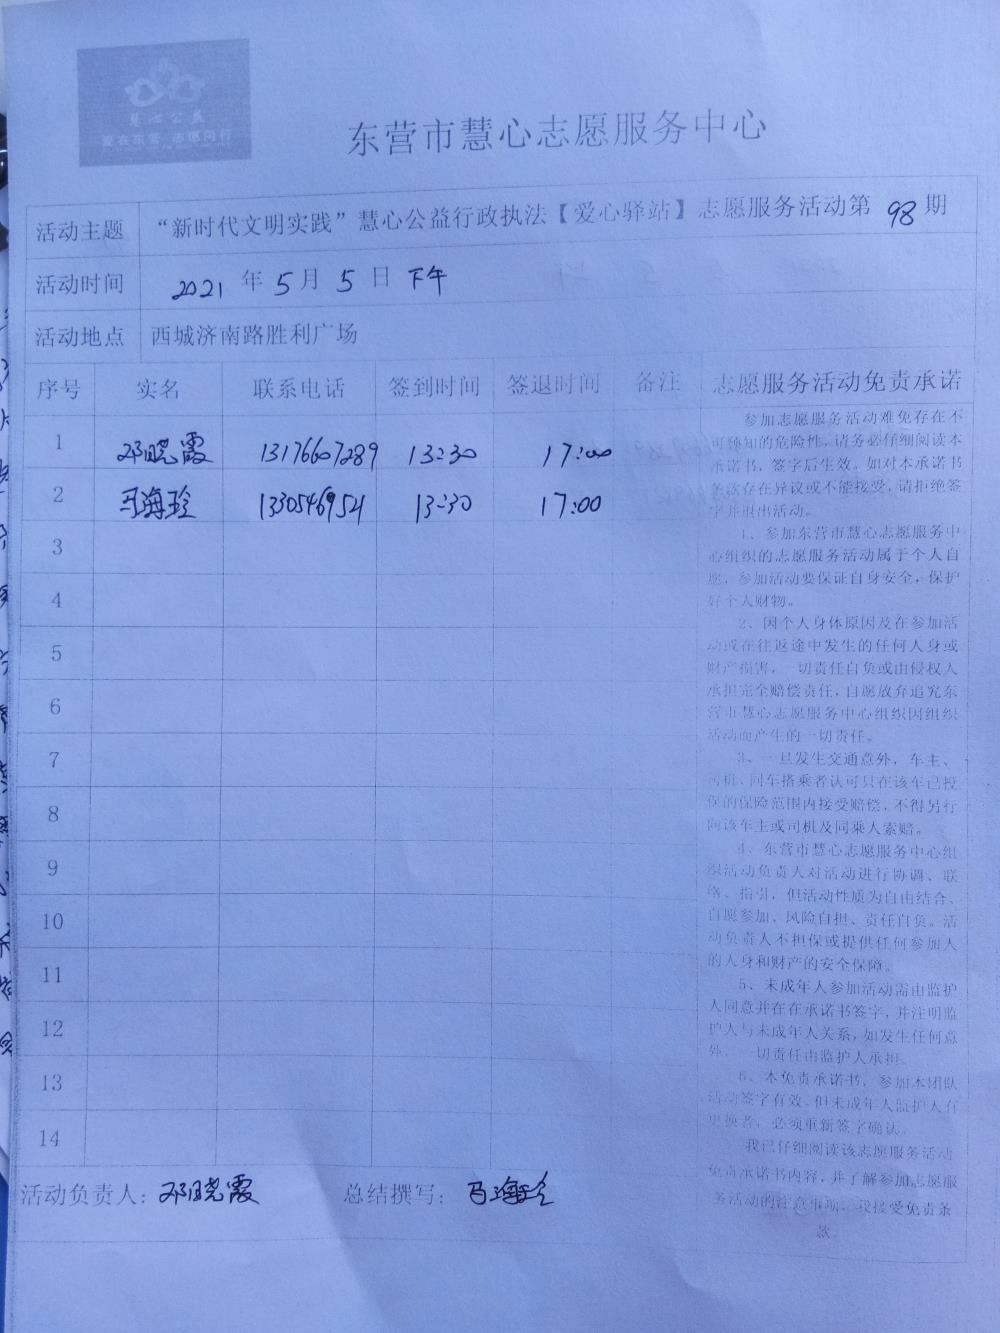 慧心公益
爱在东营 志愿同行
东营市慧心志愿服务中心
活动主题 “新时代文明实践”慧心公益行政执法【爱心驿站】志愿服务活动第 98 期
活动时间 2021 年 5 月 5 日 下午
活动地点 西城济南路胜利广场
序号 实名 联系电话 签到时间 签退时间 备注 志愿服务活动免责承诺
1 邓晓霞 13176607289 13:30 17:00
2 马海玲 1330546952 13:30 17:00
3
4
5
6
7
8
9
10
11
12
13
14
参加志愿服务活动难免存在不
可预知的危险性，请务必仔细阅读本
承诺书，签字后生效。如对本承诺书
条款存在异议或不能接受，请拒绝签
字并退出活动。
1、参加东营市慧心志愿服务中
心组织的志愿服务活动属于个人自
愿，参加活动要保证自身安全，保护
好个人财物。
2、因个人身体原因及在参加活
动或在往返途中发生的任何人身或
财产损害，一切责任自负或由侵权人
承担完全赔偿责任，自愿放弃追究东
营市慧心志愿服务中心组织因组织
活动而产生的一切责任。
3、一旦发生交通意外，车主、
司机、同车搭乘者认可只在该车已投
保的保险范围内接受赔偿，不得另行
向该车主或司机及同乘人索赔。
4、东营市慧心志愿服务中心组
织活动负责人对活动进行协调、联
络、指引，但活动性质为自由结合、
自愿参加、风险自担、责任自负。活
动负责人不担保或提供任何参加人
的人身和财产的安全保障。
5、未成年人参加活动需由监护
人同意并在在承诺书签字，并注明监
护人与未成年人关系，如发生任何意
外，一切责任由监护人承担。
6、本免责承诺书，参加本团队
活动签字有效，但未成年人监护人有
更换者，必须重新签字确认。
我已仔细阅读该志愿服务活动
免责承诺书内容，并了解参加志愿服
务活动的注意事项，我接受免责条
款。
活动负责人：邓晓霞 总结撰写：马海玲